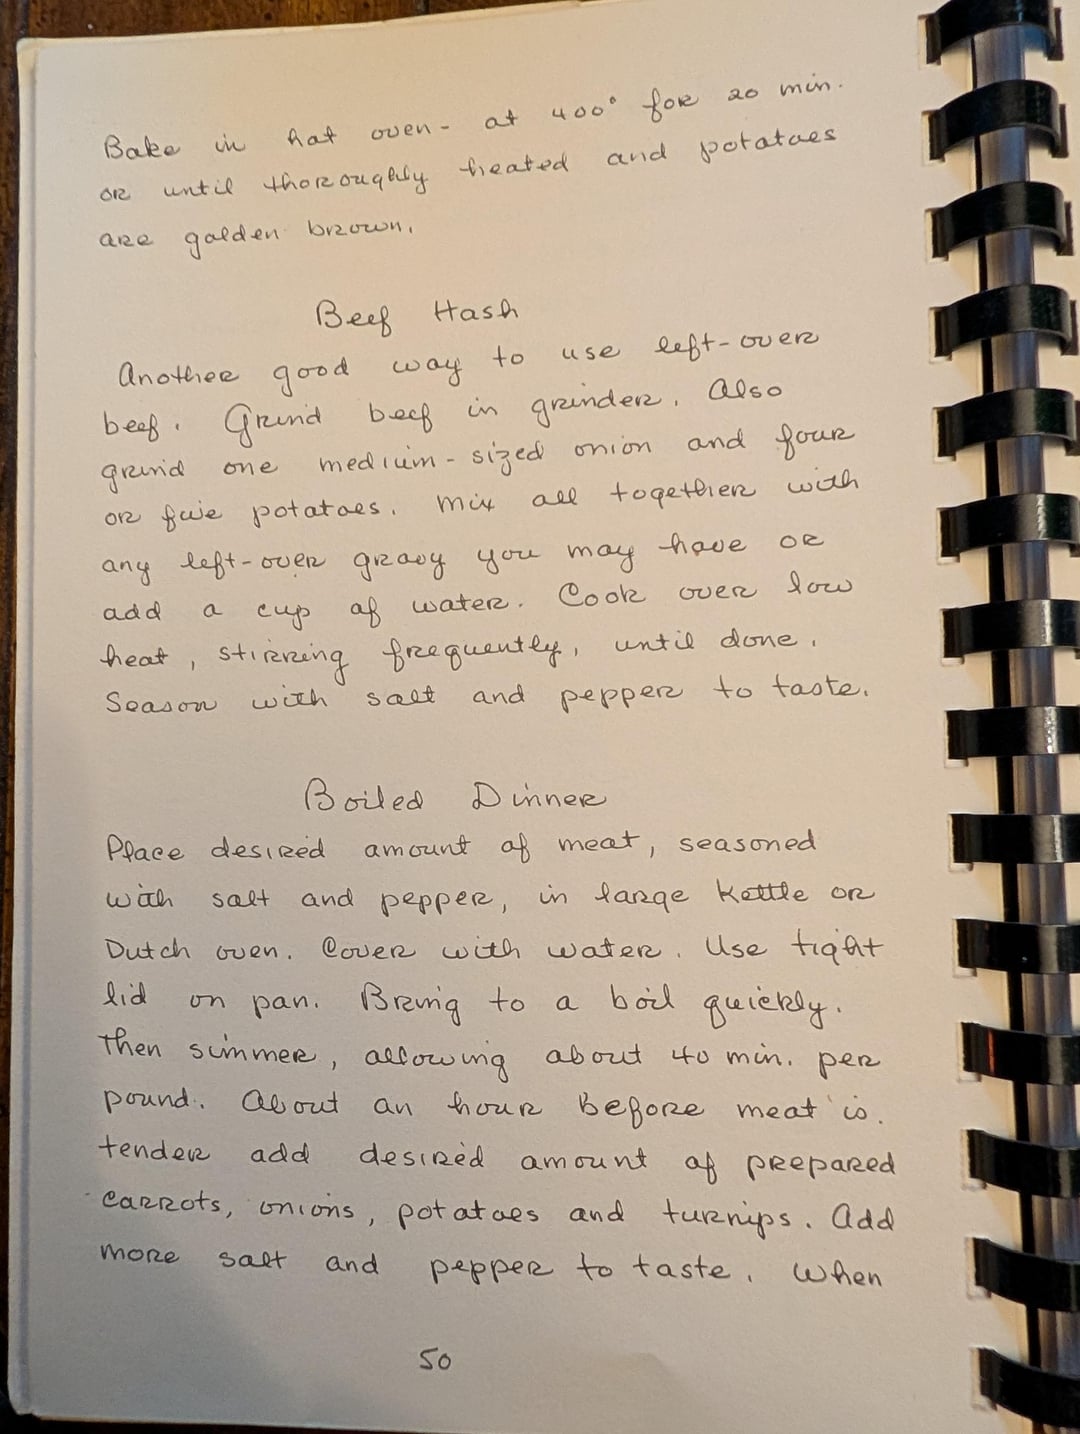 Bake in hot oven - at 400° for 20 min.
or until thoroughly heated and potatoes
are golden brown.
Beef Hash
Another good way to use left-over
beef. Grind beef in grinder. Also
grind one medium-sized onion and four
or five potatoes. Mix all together with
any left-over gravy you may have or
add a cup of water. Cook over low
heat, stirring frequently, until done.
Season with salt and pepper to taste.
Boiled Dinner
Place desired amount of meat, seasoned
with salt and pepper, in large kettle or
Dutch oven. Cover with water. Use tight
lid on pan. Bring to a boil quickly.
Then simmer, allowing about 40 min. per
pound. About an hour before meat is
tender add desired amount of prepared
carrots, onions, potatoes and turnips. Add
more salt and pepper to taste. When
50